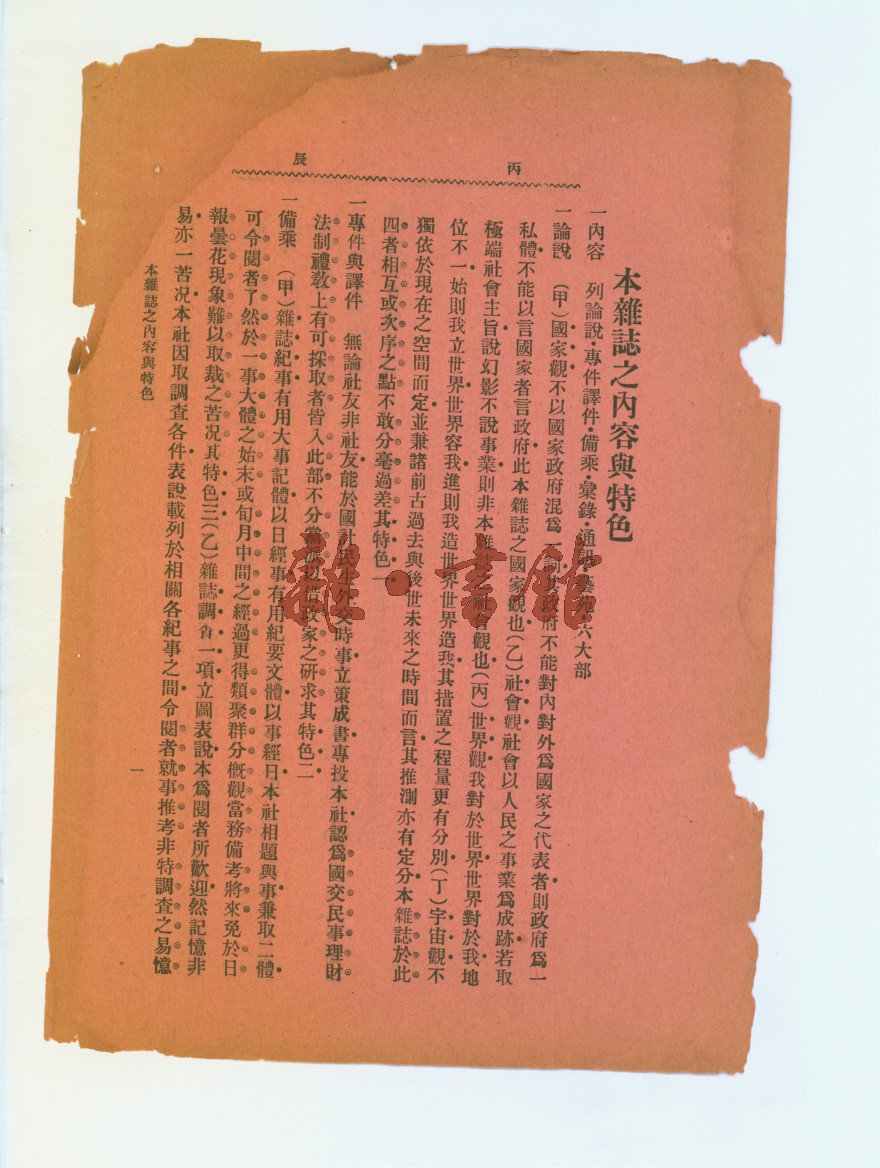 丙辰
本雜誌之內容與特色
一內容　列論說・專件譯件・備乘・彙錄・通訊・藝苑・六大部
一論說　(甲)國家觀不以國家政府混爲一詞其政府不能對內對外爲國家之代表者則政府爲一
私體不能以言國家者言政府此本雜誌之國家觀也(乙)社會觀社會以人民之事業爲成跡若取
極端社會主旨說幻影不說事業則非本雜誌之社會觀也(丙)世界觀我對於世界世界對於我地
位不一始則我立世界世界容我進則我造世界世界造我其措置之程量更有分別(丁)宇宙觀不
獨依於現在之空間而定並兼諸前古過去與後世未來之時間而言其推測亦有定分本雜誌於此
四者相互或次序之點不敢分毫過差其特色一
一專件與譯件　無論社友非社友能於國計民生外交時事立策成書專投本社認爲國交民事理財
法制禮敎上有可採取者皆入此部不分黨派以借政家之研求其特色二
一備乘　(甲)雜誌紀事有用大事記體以日經事有用紀要文體以事經日本社相題與事兼取二體
可令閱者了然於一事大體之始末或旬月中間之經過更得類聚群分概觀當務備考將來免於日
報曇花現象難以取裁之苦况其特色三(乙)雜誌調查一項立圖表說本爲閱者所歡迎然記憶非
易亦一苦况本社因取調查各件表說載列於相關各紀事之間令閱者就事推考非特調查之易憶
本雜誌之內容與特色
一
雜・書館